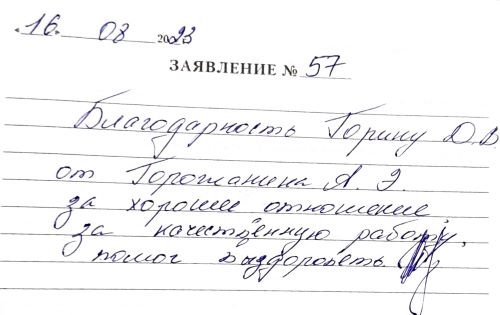 16. 08 2023
ЗАЯВЛЕНИЕ № 57
Благодарность Горину Д.В
от Горожанина А. Э.
за хорошее отношение
за качественную работу,
помог выздороветь.